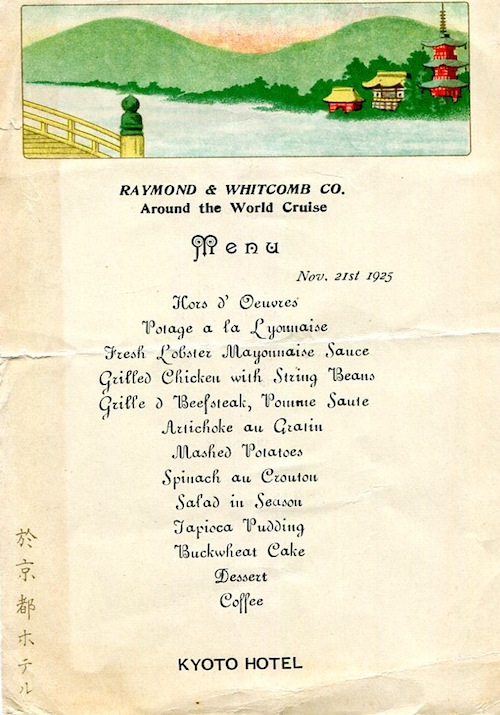 RAYMOND & WHITCOMB CO.
Around the World Cruise
Menu
Nov. 21st 1925
Hors d' Oeuvres
Potage a la Lyonnaise
Fresh Lobster Mayonnaise Sauce
Grilled Chicken with String Beans
Grille d Beefsteak, Pomme Saute
Artichoke au Gratin
Mashed Potatoes
Spinach au Crouton
Salad in Season
Tapioca Pudding
Buckwheat Cake
Dessert
Coffee
KYOTO HOTEL
於京都ホテル